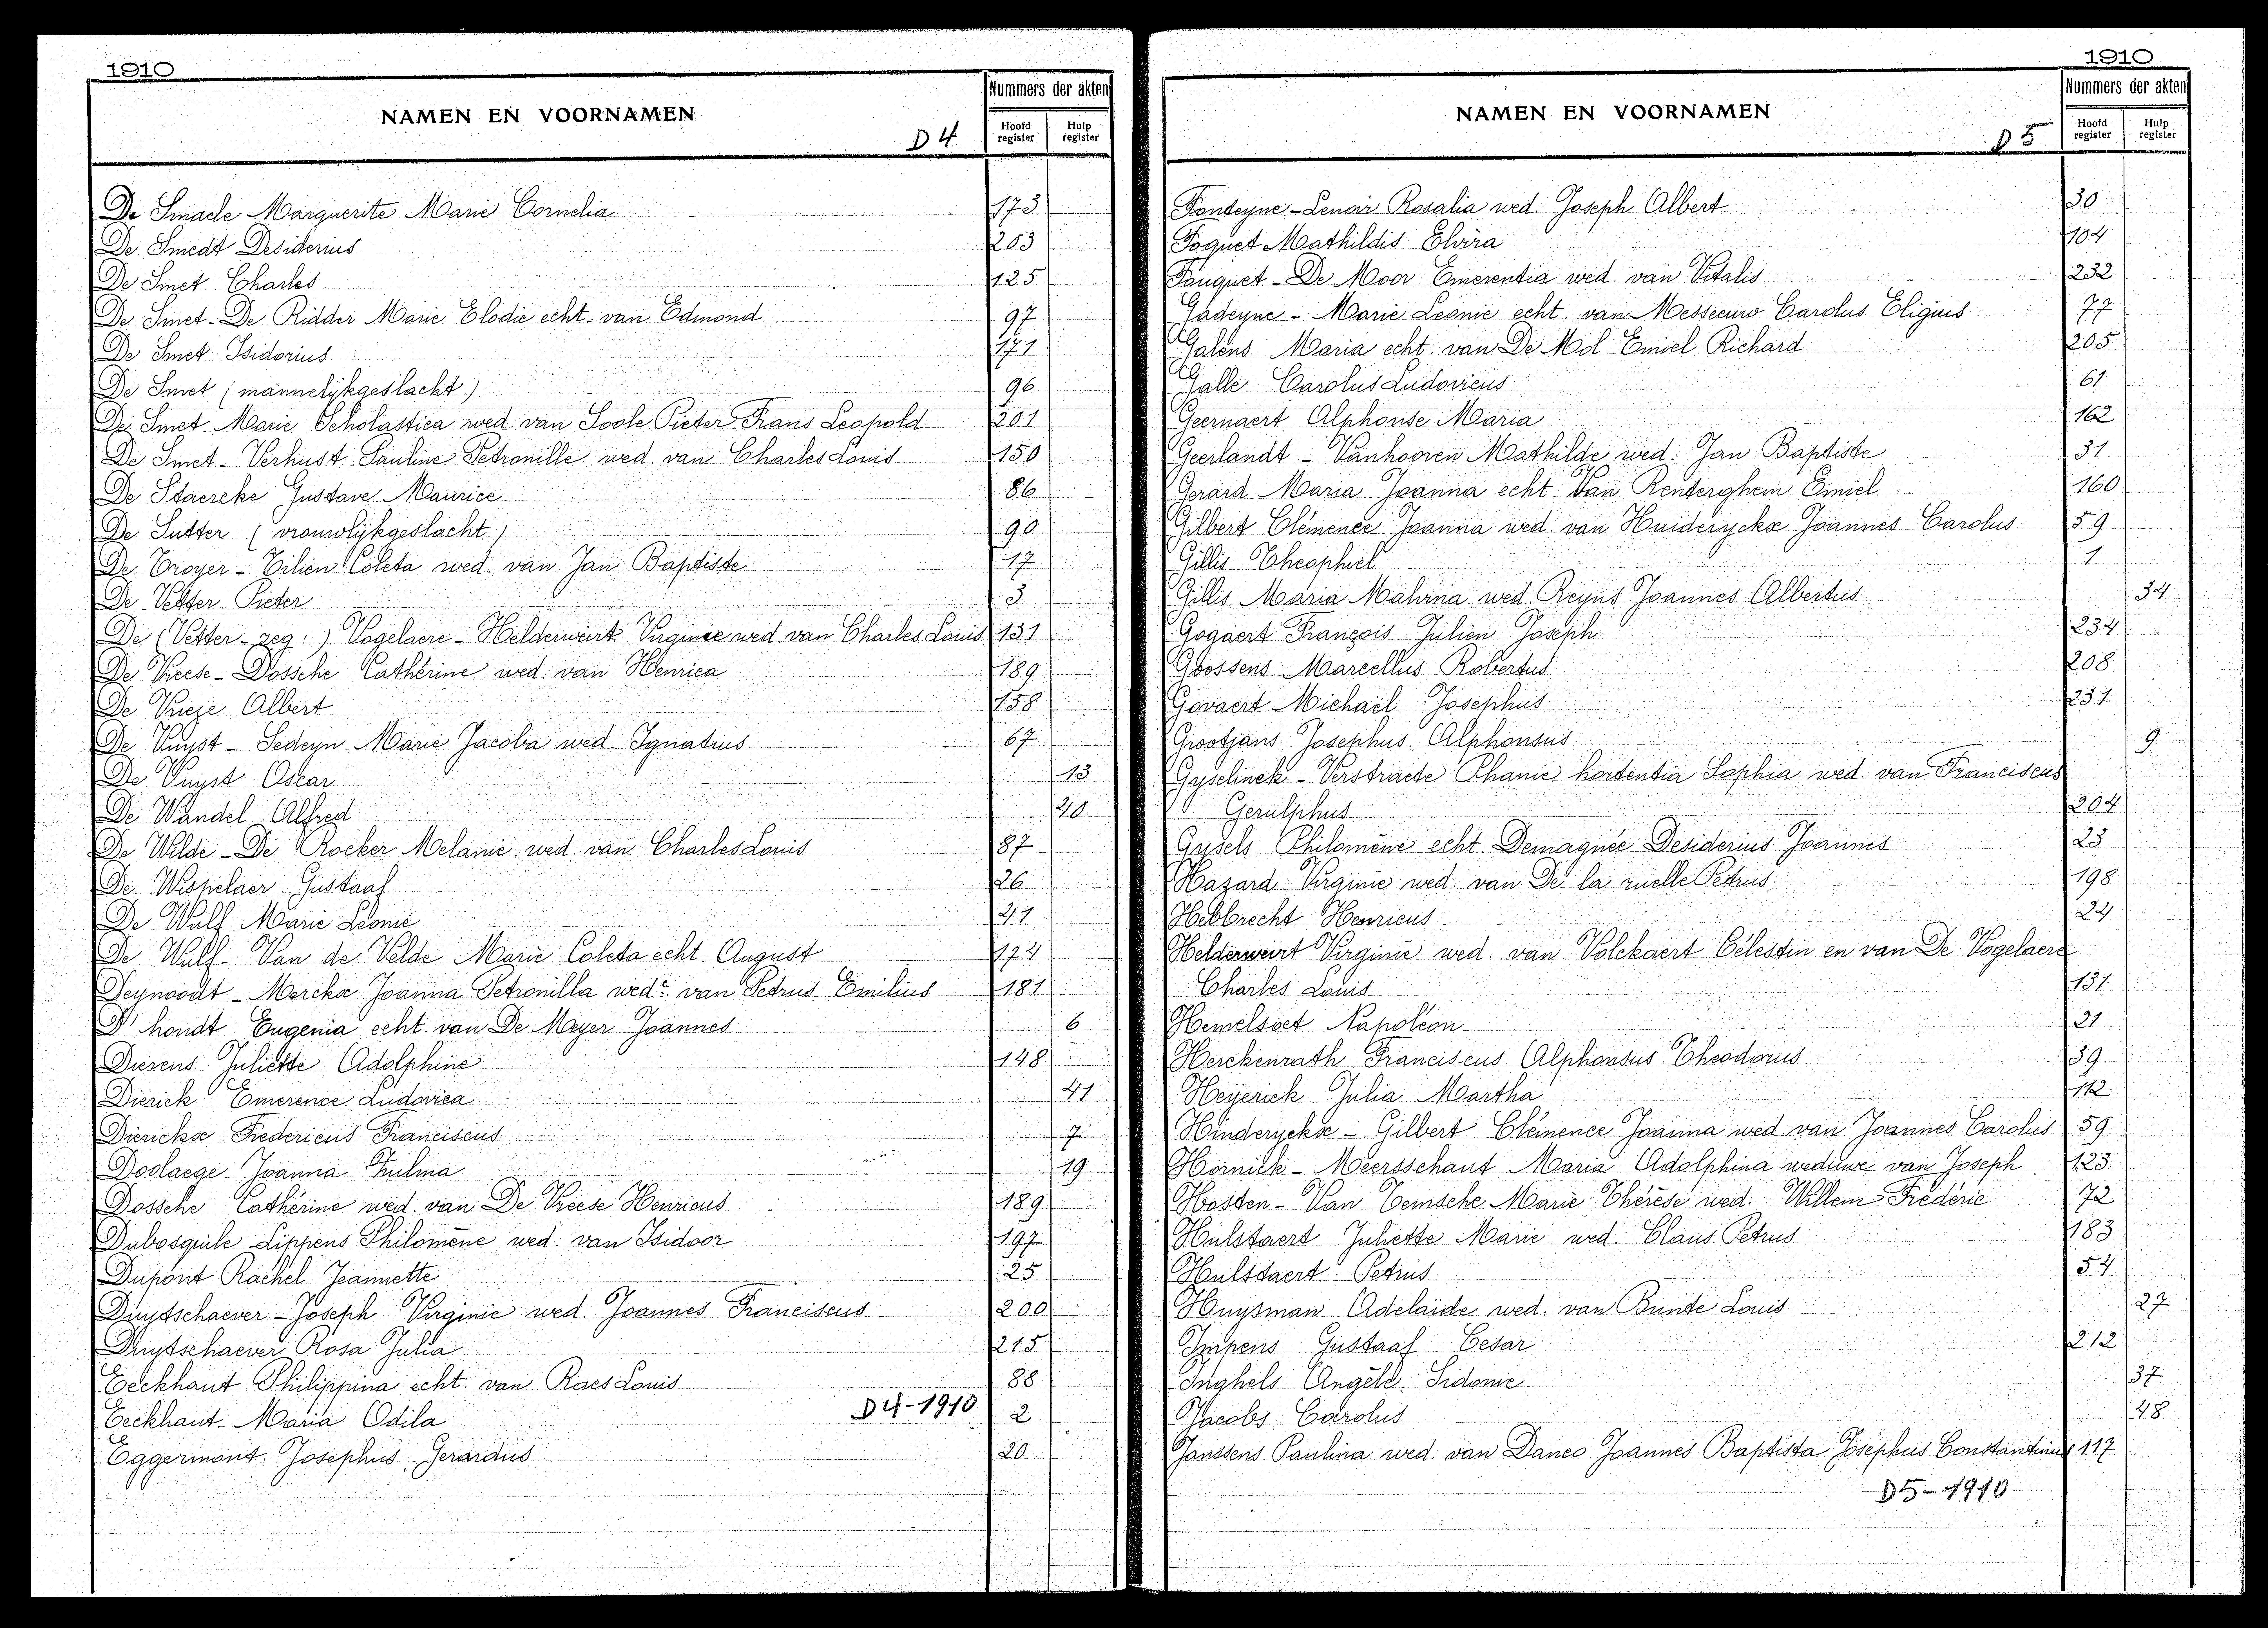 1910
NAMEN EN VOORNAMEN
D 4
Nummers der akten
Hoofd register
Hulp register
De Smaele Marguerite Marie Cornelia 173
De Smedt Desiderius 203
De Smet Charles 125
De Smet - De Ridder Marie Elodie echt. van Edmond 97
De Smet Isidorius 171
De Smet (mannelijkgeslacht) 96
De Smet Marie Scholastica wed. van Soole Pieter Frans Leopold 201
De Smet - Verhust Pauline Petronille wed. van Charles Louis 150
De Staercke Gustave Maurice 86
De Sutter (vrouwlijkgeslacht) 90
De Troyer - Tilien Coleta wed. van Jan Baptiste 17
De Vetter Pieter 3
De (Vetter - zeg:) Vogelaere - Helderweirt Virginie wed. van Charles Louis 131
De Vreese - Dossche Cathérine wed. van Henrica 189
De Vrieze Albert 158
De Vuyst - Sedeyn Marie Jacoba wed. Ignatius 67
De Vuyst Oscar 13
De Wandel Alfred 20
De Wilde - De Rocker Melanie wed. van Charles Louis 87
De Wispelaer Gustaaf 26
De Wulf Marie Léonie 41
De Wulf - Van de Velde Marie Coleta echt August 174
Deynoodt - Merckx Joanna Petronilla wede van Petrus Emilius 181
D'hondt Eugenia echt. van De Meyer Joannes 6
Dierens Juliette Adolphine 148
Dierick Emerence Ludovica 41
Dierickx Fredericus Franciscus 7
Doolaege Joanna Zulma 19
Dossche Cathérine wed. van De Vreese Henricus 189
Dubosquile Lippens Philomène wed. van Isidoor 197
Dupont Rachel Jeannette 25
Duytschaever - Joseph Virginie wed. Joannes Franciscus 200
Duytschaever Rosa Julia 215
Eeckhaut Philippina echt. van Raes Louis 88
Eeckhaut Maria Odila 2
D4-1910
Eggermont Josephus Gerardus 20
1910
NAMEN EN VOORNAMEN
D 5
Nummers der akten
Hoofd register
Hulp register
Fonteyne - Lenoir Rosalia wed. Joseph Albert 30
Foquet Mathildis Elvira 104
Fouquet - De Moor Emerentia wed. van Vitalis 232
Gadeyne - Marie Leonie echt. van Messeeuw Carolus Eligius 77
Galens Maria echt. van De Mol - Emiel Richard 205
Galle Carolus Ludovicus 61
Geernaert Alphonse Maria 162
Geerlandt - Vanhooren Mathilde wed. Jan Baptiste 31
Gerard Maria Joanna echt. Van Renterghem Emiel 160
Gilbert Clémence Joanna wed. van Huideryckx Joannes Carolus 59
Gillis Theophiel 1
Gillis Maria Malvina wed. Reyns Joannes Albertus 34
Gogaert François Julien Joseph 234
Goossens Marcellus Robertus 208
Govaert Michaël Josephus 231
Grootjans Josephus Alphonsus 9
Gyselinck - Verstraete Phanie hortentia Sophia wed. van Franciscus
Gerulphus 204
Gysels Philomène echt. Demagnée Desiderius Joannes 23
Hazard Virginie wed. van De la ruelle Petrus 198
Hebbrecht Henricus 24
Helderweirt Virginie wed. van Volckaert Célestin en van De Vogelaere
Charles Louis 131
Hemelsoet Napoléon 21
Herckenrath Franciscus Alphonsus Theodorus 39
Heyerick Julia Martha 112
Hinderyckx - Gilbert Clémence Joanna wed. van Joannes Carolus 59
Hornick - Meersschaut Maria Adolphina weduwe van Joseph 123
Hosten - Van Temsche Marie Thérèse wed. Willem Frédéric 72
Hulstaert Juliette Marie wed. Claus Petrus 183
Hulstaert Petrus 54
Huysman Adelaïde wed. van Bunte Louis 27
Impens Gustaaf Cesar 212
Inghels Angèle Sidonie 37
Jacobs Carolus 48
Janssens Paulina wed. van Danco Joannes Baptista Josephus Constantinus 117
D5-1910